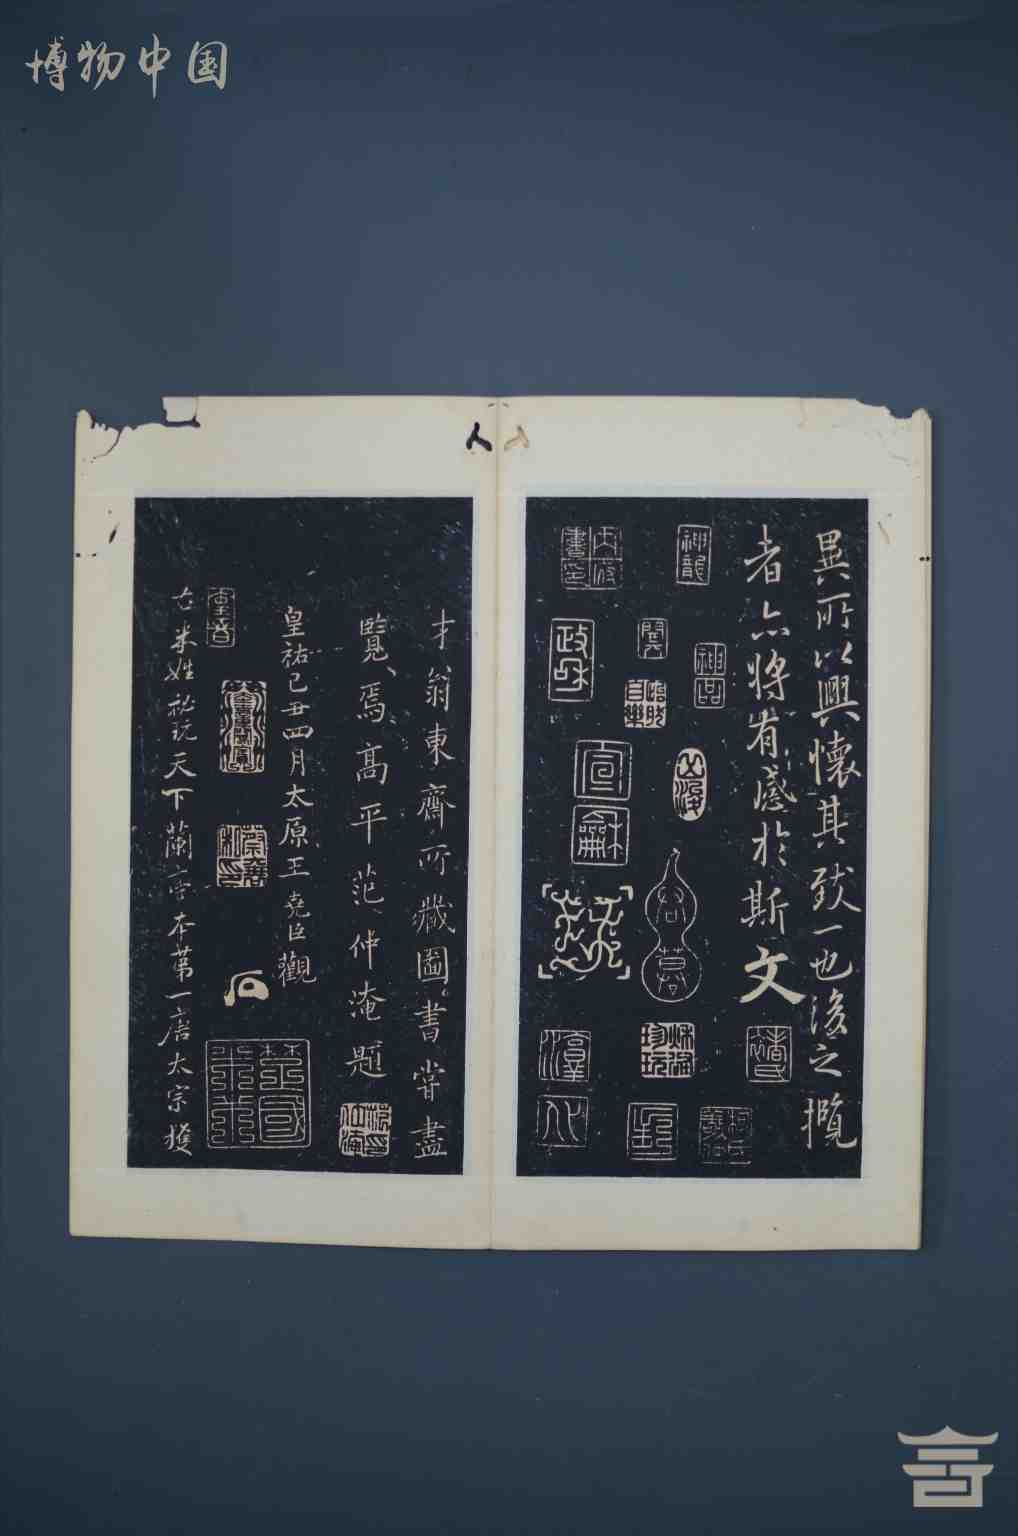 博物中国
異所以興懷其致一也後之攬
者亦將有感於斯文
神龍
神品
內府書印
政和
宣龢
淳化
才翁東齋所藏圖書嘗盡
覽焉高平范仲淹題
皇祐己丑四月太原王堯臣觀
右米姓祕玩天下蘭亭本第一唐太宗獲